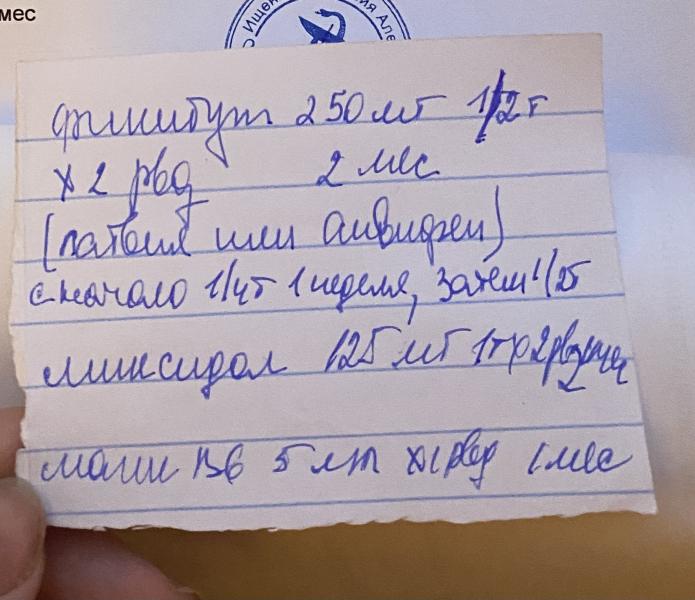 мес
Ищен
ия Але
фенибут 250 мг 1/2 т
х 2 рвд 2 мес
(латвия или анвифен)
сначало 1/4т 1 неделя, затем 1/2т
мексидол 125 мг 1т х 2 рвд 2 мес
магний B6 5 мл х 1 рвд 1 мес